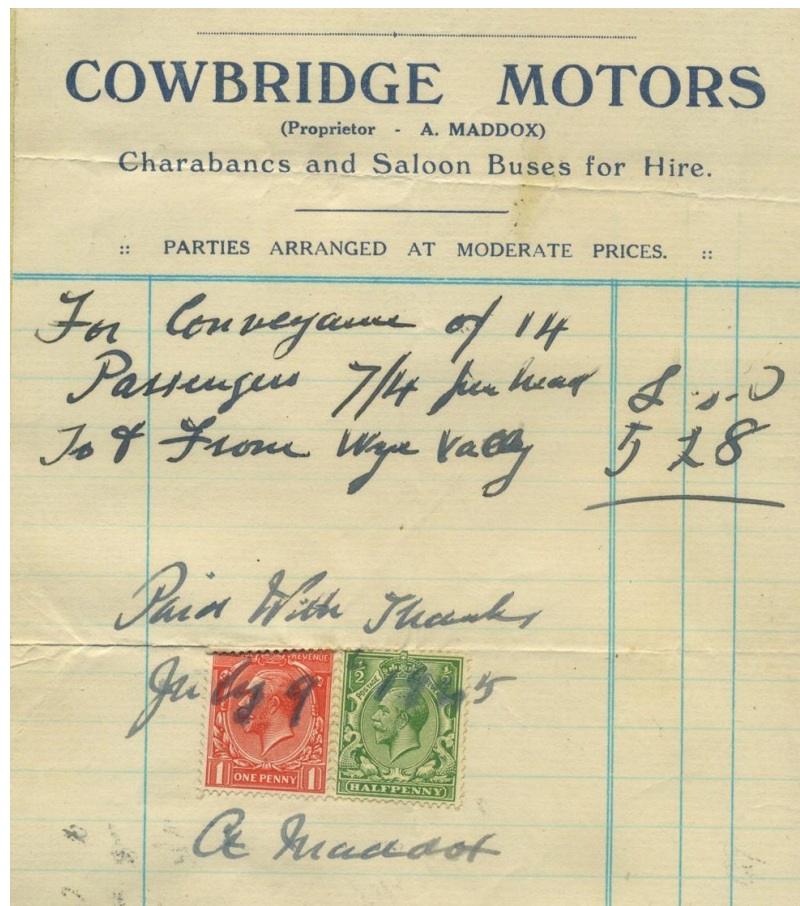 COWBRIDGE MOTORS
(Proprietor - A. MADDOX)
Charabancs and Saloon Buses for Hire.
:: PARTIES ARRANGED AT MODERATE PRICES. ::
For Conveyance of 14
Passengers 7/4 per head £ s. D
To & From Wye Vally 5 2 8
Paid With Thanks
REVENUE ½ ½
POSTAGE
July 9 1925
1 ONE PENNY 1 HALFPENNY
A Maddox